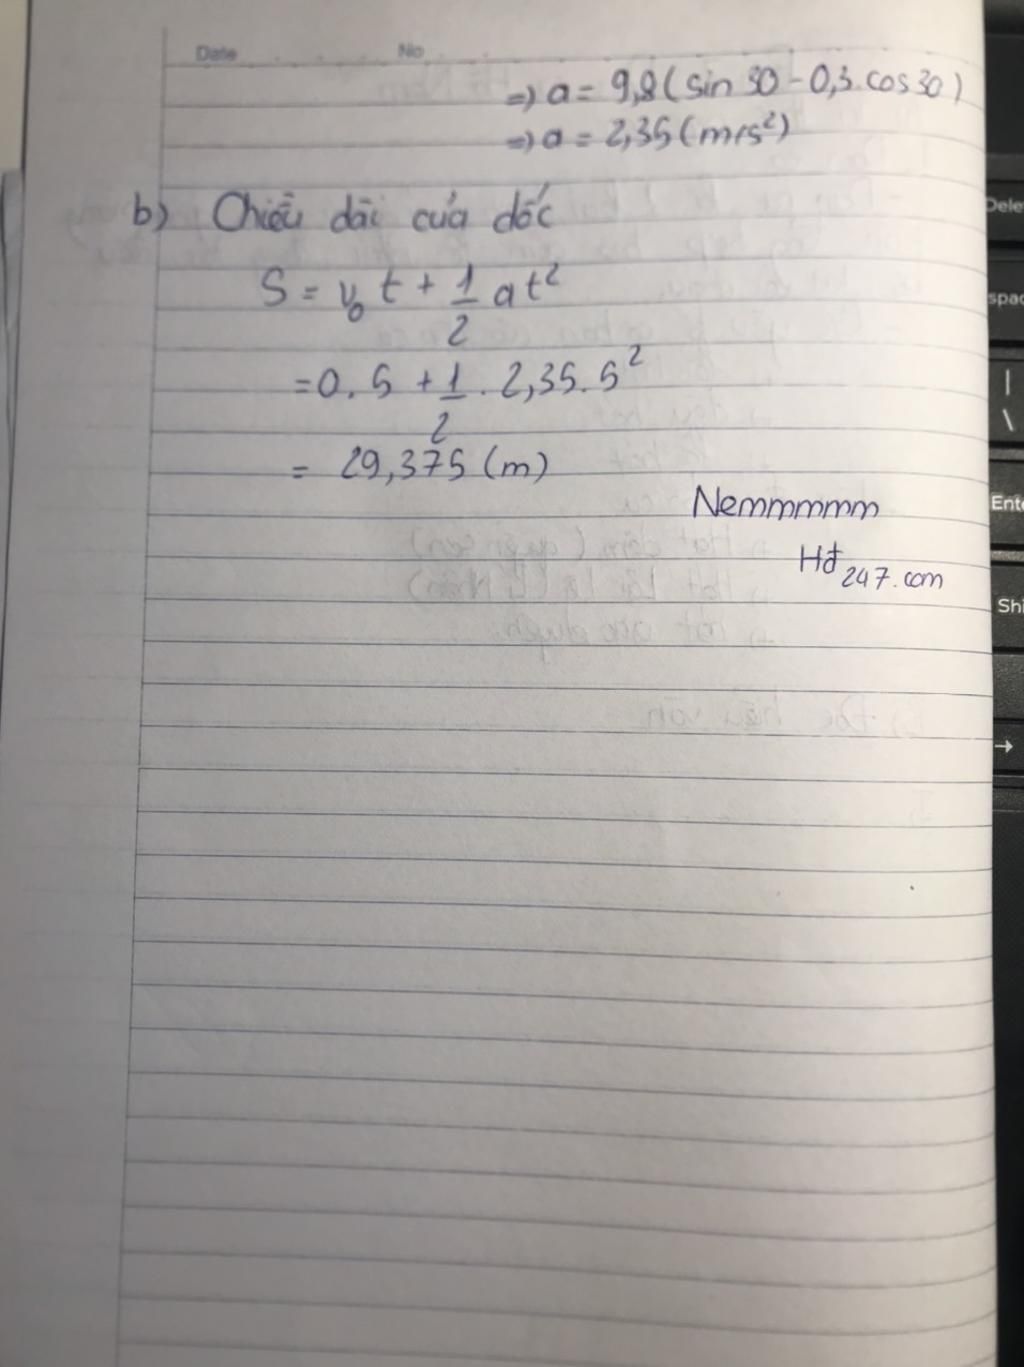 Date No
=> a = 9,8 ( sin 30 - 0,3 . cos 30 )
=> a = 2,35 ( m/s² )
b) Chiều dài của dốc
S = v₀ t + 1/2 a t²
= 0 . 5 + 1/2 . 2,35 . 5²
= 29,375 (m)
Nemmmmm
Hđ247.com
Delet
spac
|
\
Ente
Shi
→